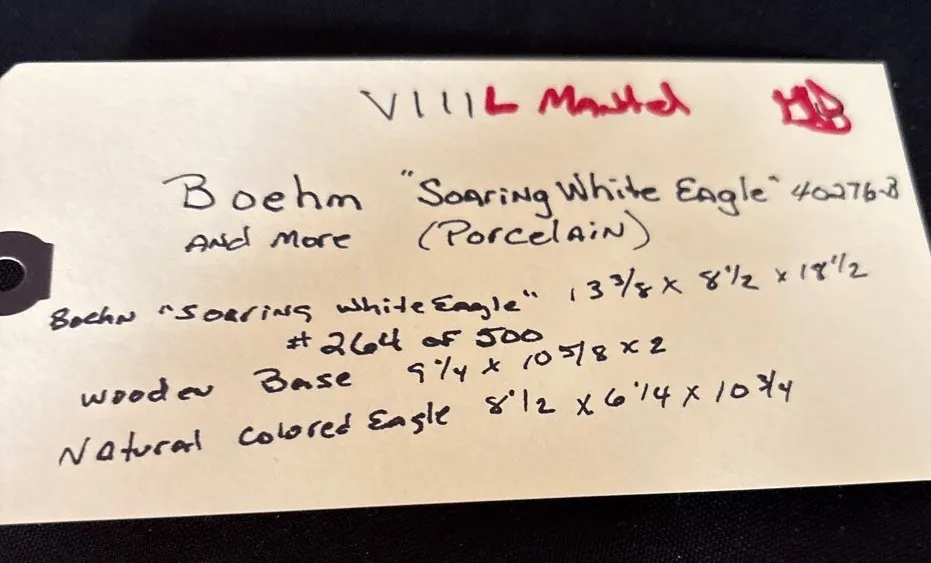 VIII L Mantel
Boehm "Soaring White Eagle" 40276-B
And More (Porcelain)
Boehm "Soaring White Eagle" 13 3/8 x 8 1/2 x 18 1/2
# 264 of 500
Wooden Base 9 1/4 x 10 5/8 x 2
Natural Colored Eagle 8 1/2 x 6 1/4 x 10 3/4